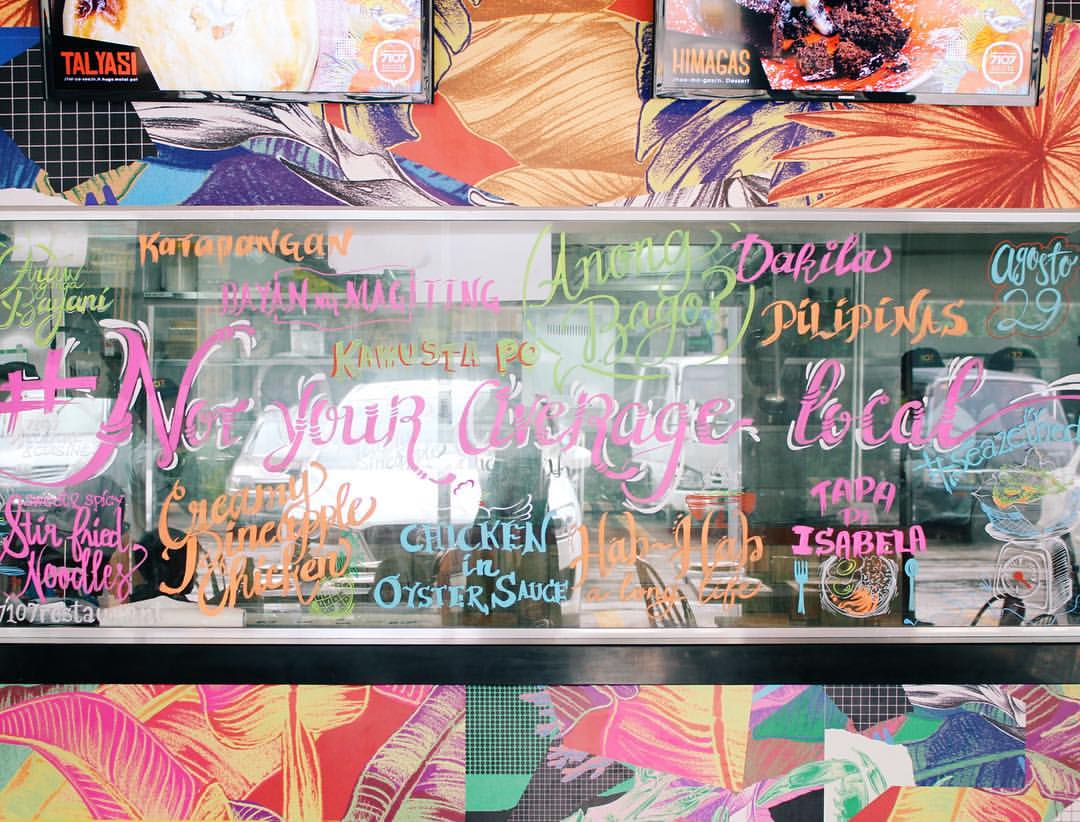 TALYASI
HIMAGAS
7107
7107
Araw
ng mga
Bayani
KATAPANGAN
BAYAN ng MAGITING
KAMUSTA PO
Anong
Bago?
Dakila
PILIPINAS
Agosto
29
#Not your average local
#seazethed
sweet & spicy
Stir fried
Noodles
Creamy
Pineapple
Chicken
CHICKEN
in
OYSTER SAUCE
Hab-Hab
a long life
TAPA
DE
ISABELA
7107restaurant